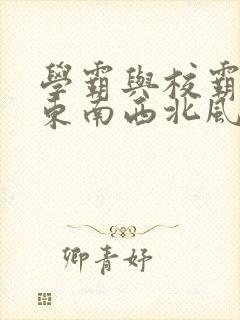 學霸與校霸
東南西北風
卿青妤